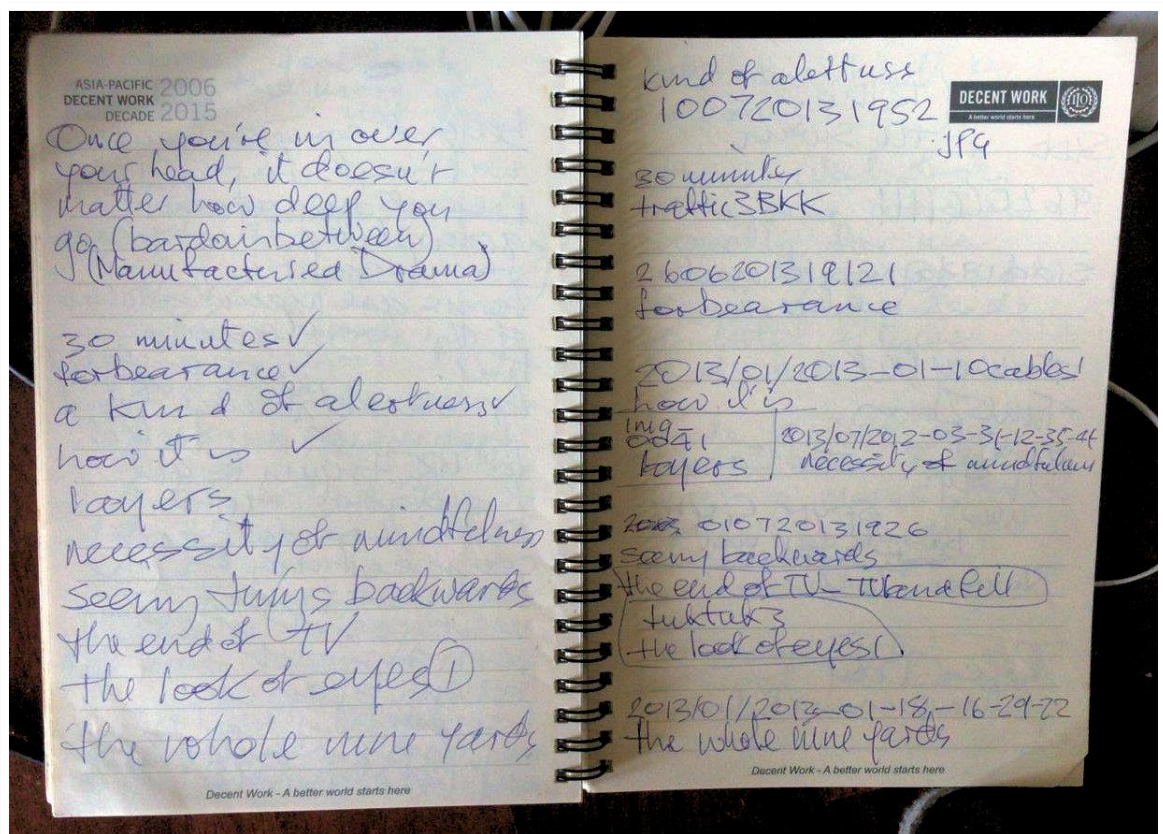 ASIA-PACIFIC 2006
DECENT WORK
DECADE 2015
Once you're in over
your head, it doesn't
matter how deep you
go (bardoinbetween)
(Manufactured Drama)
30 minutes ✓
forbearance ✓
a kind of alertness ✓
how it is ✓
layers
necessity of mindfulness
seeing things backwards
the end of TV
the look of eyes ①
the whole nine yards
Decent Work - A better world starts here
kind of alertness
100720131952
JPG
DECENT WORK
A better world starts here
ILO
30 minutes
traffic3BKK
260620131912 1
forbearance
2013/01/2013-01-10cables1
how it is
img-
0041
layers
2013/07/2012-03-31-12-35-
necessity of mindfulness
010720131926
seeing backwards
the end of TV - TVlandfill
tuktuk3
the look of eyes 1
2013/01/2012-01-18-16-29-22
the whole nine yards
Decent Work - A better world starts here